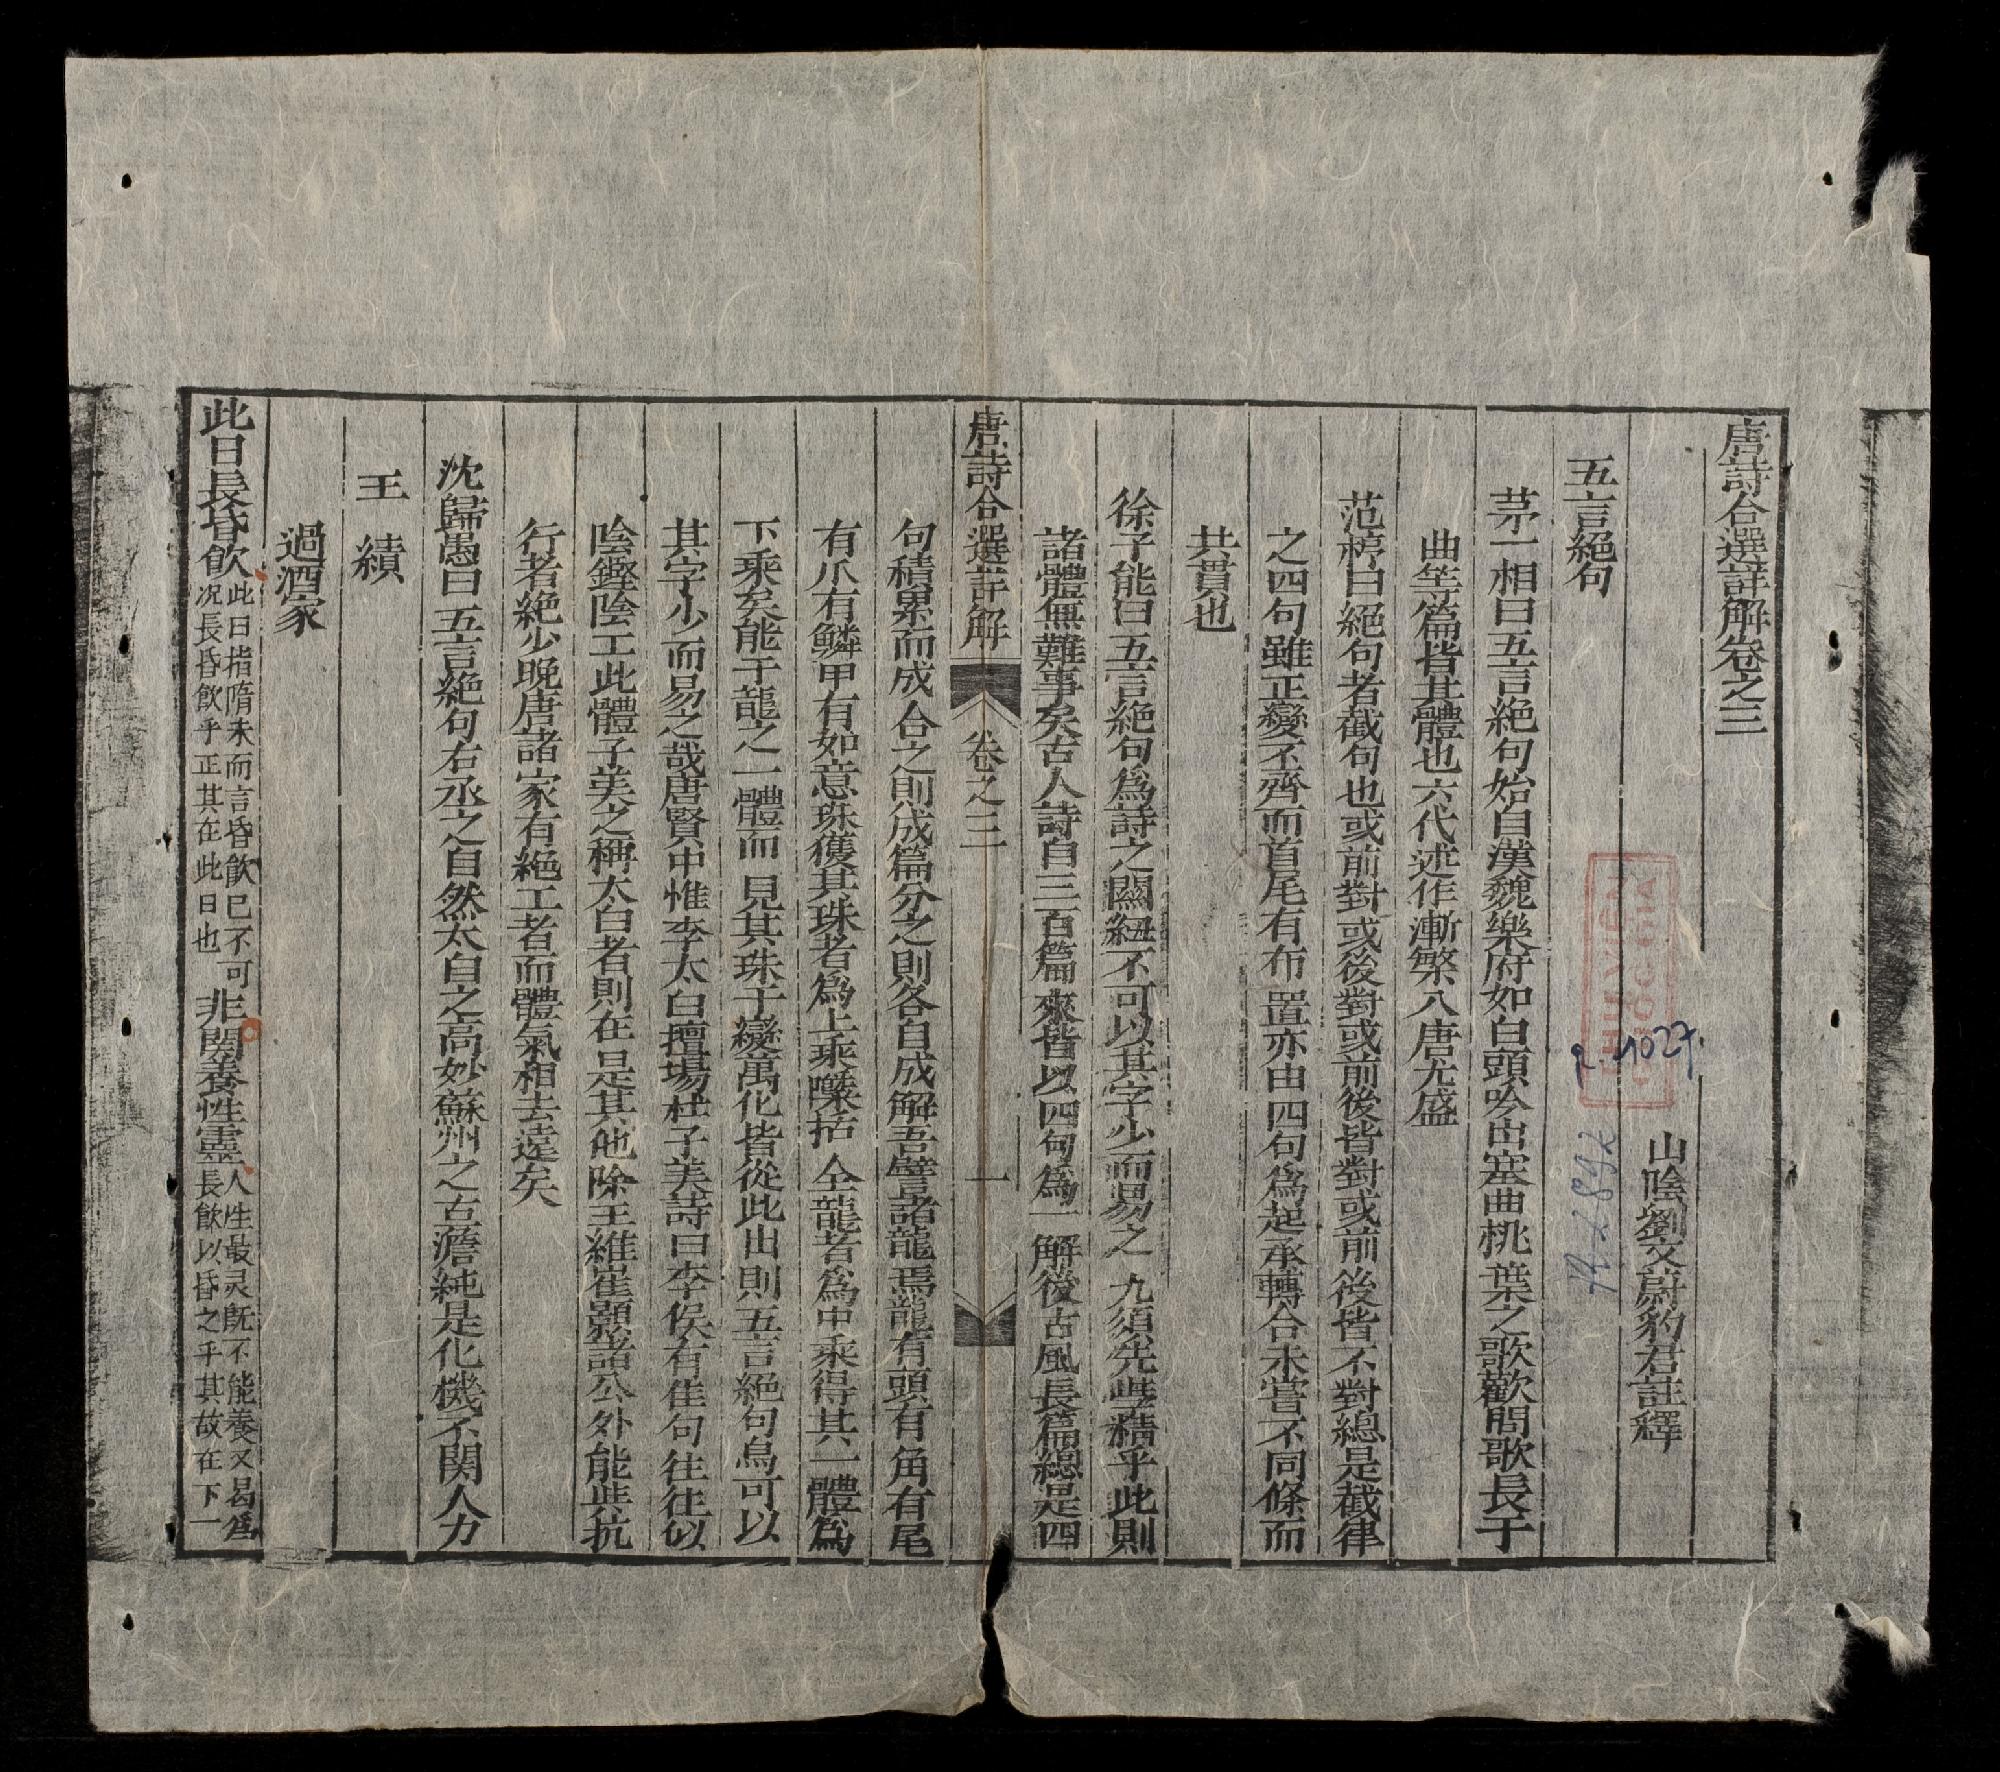 唐詩合選詳解卷之三
山陰劉文蔚豹君註釋
五言絕句
茅一相曰五言絕句始自漢魏樂府如白頭吟出塞曲桃葉之歌歡聞歌長于
曲等篇皆其體也六代述作漸繁入唐尤盛
范梈曰絕句者截句也或前對或後對或前後皆對或前後皆不對總是截律
之四句雖正變不齊而首尾有布置亦由四句爲起承轉合未嘗不同條而
共貫也
徐子能曰五言絕句爲詩之關紐不可以其字少而易之九須先學精乎此則
諸體無難事矣古人詩自三百篇來皆以四句爲一解後古風長篇總是四
唐詩合選詳解
卷之三
一
句積累而成合之則成篇分之則各自成解吾譬諸龍焉龍有頭有角有尾
有爪有鱗甲有如意珠獲其珠者爲上乘隳括全龍者爲中乘得其一體爲
下乘矣能于龍之一體而見其珠于變萬化皆從此出則五言絕句烏可以
其字少而易之哉唐賢中惟李太白擅場杜子美詩曰李侯有佳句往往似
陰鏗陰工此體子美之稱太白者則在是其他除王維崔顥諸公外能與抗
行者絕少晚唐諸家有絕工者而體氣相去遠矣
沈歸愚曰五言絕句右丞之自然太白之高妙蘇州之古澹純是化機不関人力
王績
過酒家
此日長昏飲 此日指隋末而言昏飲已不可況長昏飲乎正其在此日也 非関養性靈 人性最灵既不能養又曷爲長飲以昏之乎其故在下一
THƯ VIỆN
QUỐC GIA
R.1027